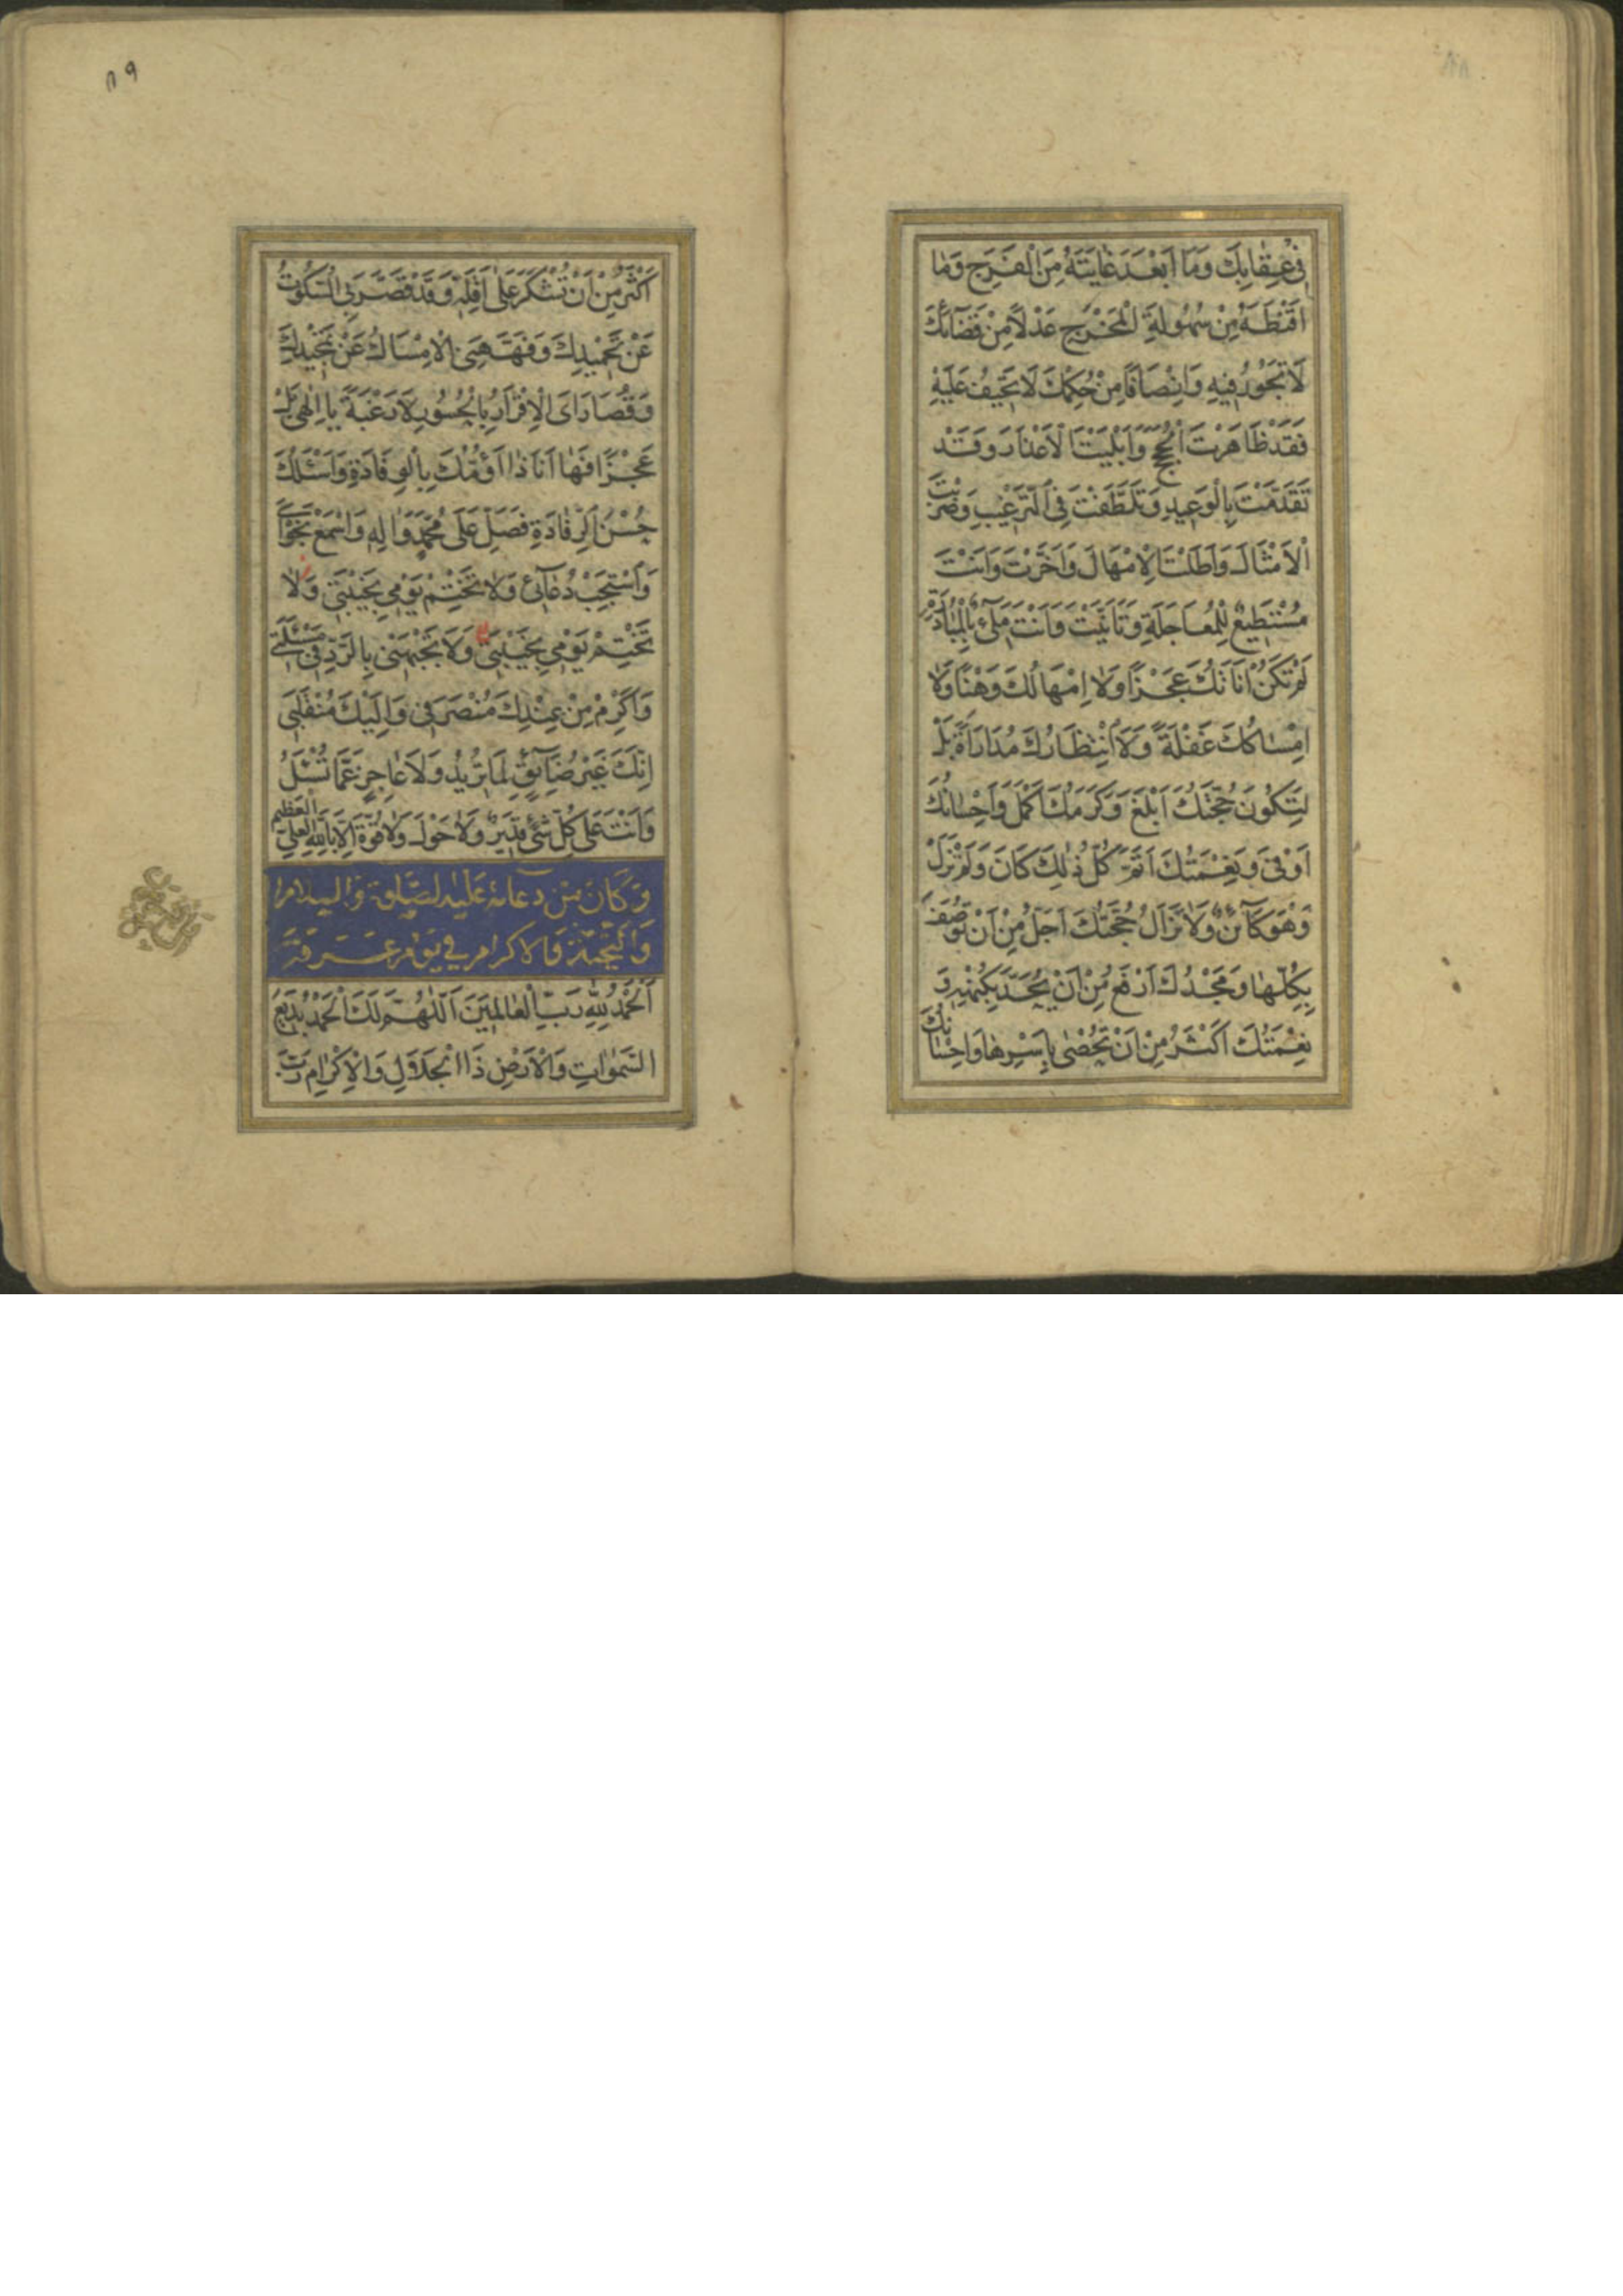 ٨٨
فِي عِقَابِكَ وَمَا اَبْعَدَ غَايَتَهُ مِنَ الْفَرَجِ وَمَا
اَقْنَطَهُ مِنْ سُهُولَةِ الْمَخْرَجِ عَدْلًا مِنْ قَضَآئِكَ
لَا تَجُورُ فِيهِ وَاِنْصَافًا مِنْ حُكْمِكَ لَا تَحِيفُ عَلَيْهِ
فَقَدْ ظَاهَرْتَ الْحُجَجَ وَاَبْلَيْتَ الْاَعْذَارَ وَقَدْ
تَقَدَّمْتَ بِالْوَعِيدِ وَتَلَطَّفْتَ فِي التَّرْغِيبِ وَضَرَبْتَ
الْاَمْثَالَ وَاَطَلْتَ الْاِمْهَالَ وَاَخَّرْتَ وَاَنْتَ
مُسْتَطِيعٌ لِلْمُعَاجَلَةِ وَتَاَنَّيْتَ وَاَنْتَ مَلِئٌ بِالْمُبَادَرَةِ
لَمْ تَكُنْ اَنَاتُكَ عَجْزًا وَلَا اِمْهَالُكَ وَهْنًا وَلَا
اِمْسَاكُكَ غَفْلَةً وَلَا انْتِظَارُكَ مُدَارَاةً بَلْ
لِتَكُونَ حُجَّتُكَ اَبْلَغَ وَكَرَمُكَ اَكْمَلَ وَاِحْسَانُكَ
اَوْفٰى وَنِعْمَتُكَ اَتَمَّ كُلُّ ذٰلِكَ كَانَ وَلَمْ تَزَلْ
وَهُوَ كَآئِنٌ وَلَا تَزَالُ حُجَّتُكَ اَجَلُّ مِنْ اَنْ تُوصَفَ
بِكُلِّهَا وَمَجْدُكَ اَرْفَعُ مِنْ اَنْ يُحَدَّ بِكُنْهِهِ وَ
نِعْمَتُكَ اَكْثَرُ مِنْ اَنْ تُحْصٰى بِاَسْرِهَا وَاِحْسَانُكَ
٨٩
اَكْثَرُ مِنْ اَنْ تُشْكَرَ عَلٰى اَقَلِّهِ وَقَدْ قَصَّرَ بِيَ السُّكُوتُ
عَنْ تَحْمِيدِكَ وَفَهَّهَنِيَ الْاِمْسَاكُ عَنْ تَمْجِيدِكَ
وَقُصَارَاىَ الْاِقْرَارُ بِالْحُسُورِ لَا رَغْبَةً يَا اِلٰهِي بَلْ
عَجْزًا فَهَا اَنَا ذَا اَؤُمُّكَ بِالْوِفَادَةِ وَاَسْئَلُكَ
حُسْنَ الرِّفَادَةِ فَصَلِّ عَلٰى مُحَمَّدٍ وَاٰلِهِ وَاسْمَعْ نَجْوَايَ
وَاسْتَجِبْ دُعَآئِي وَلَا تَخْتِمْ يَوْمِي بِخَيْبَتِي وَلَا
تَخْتِمْ يَوْمِي بِخَيْبَتِي وَلَا تَجْبَهْنِي بِالرَّدِّ فِي مَسْئَلَتِي
وَاَكْرِمْ مِنْ عِنْدِكَ مُنْصَرَفِي وَاِلَيْكَ مُنْقَلَبِي
اِنَّكَ غَيْرُ ضَآئِقٍ لِمَا تُرِيدُ وَلَا عَاجِزٍ عَمَّا تُسْئَلُ
وَاَنْتَ عَلٰى كُلِّ شَيْءٍ قَدِيرٌ وَلَا حَوْلَ وَلَا قُوَّةَ اِلَّا بِاللّٰهِ الْعَلِيِّ الْعَظِيمِ
وَكَانَ مِنْ دُعَائِهِ عَلَيْهِ الصَّلٰوةُ وَالسَّلَامُ
وَالتَّحِيَّةُ وَالْاِكْرَامُ فِي يَوْمِ عَرَفَةَ
اَلْحَمْدُ لِلّٰهِ رَبِّ الْعَالَمِينَ اَللّٰهُمَّ لَكَ الْحَمْدُ بَدِيعَ
السَّمٰوَاتِ وَالْاَرْضِ ذَا الْجَلَالِ وَالْاِكْرَامِ رَبَّ